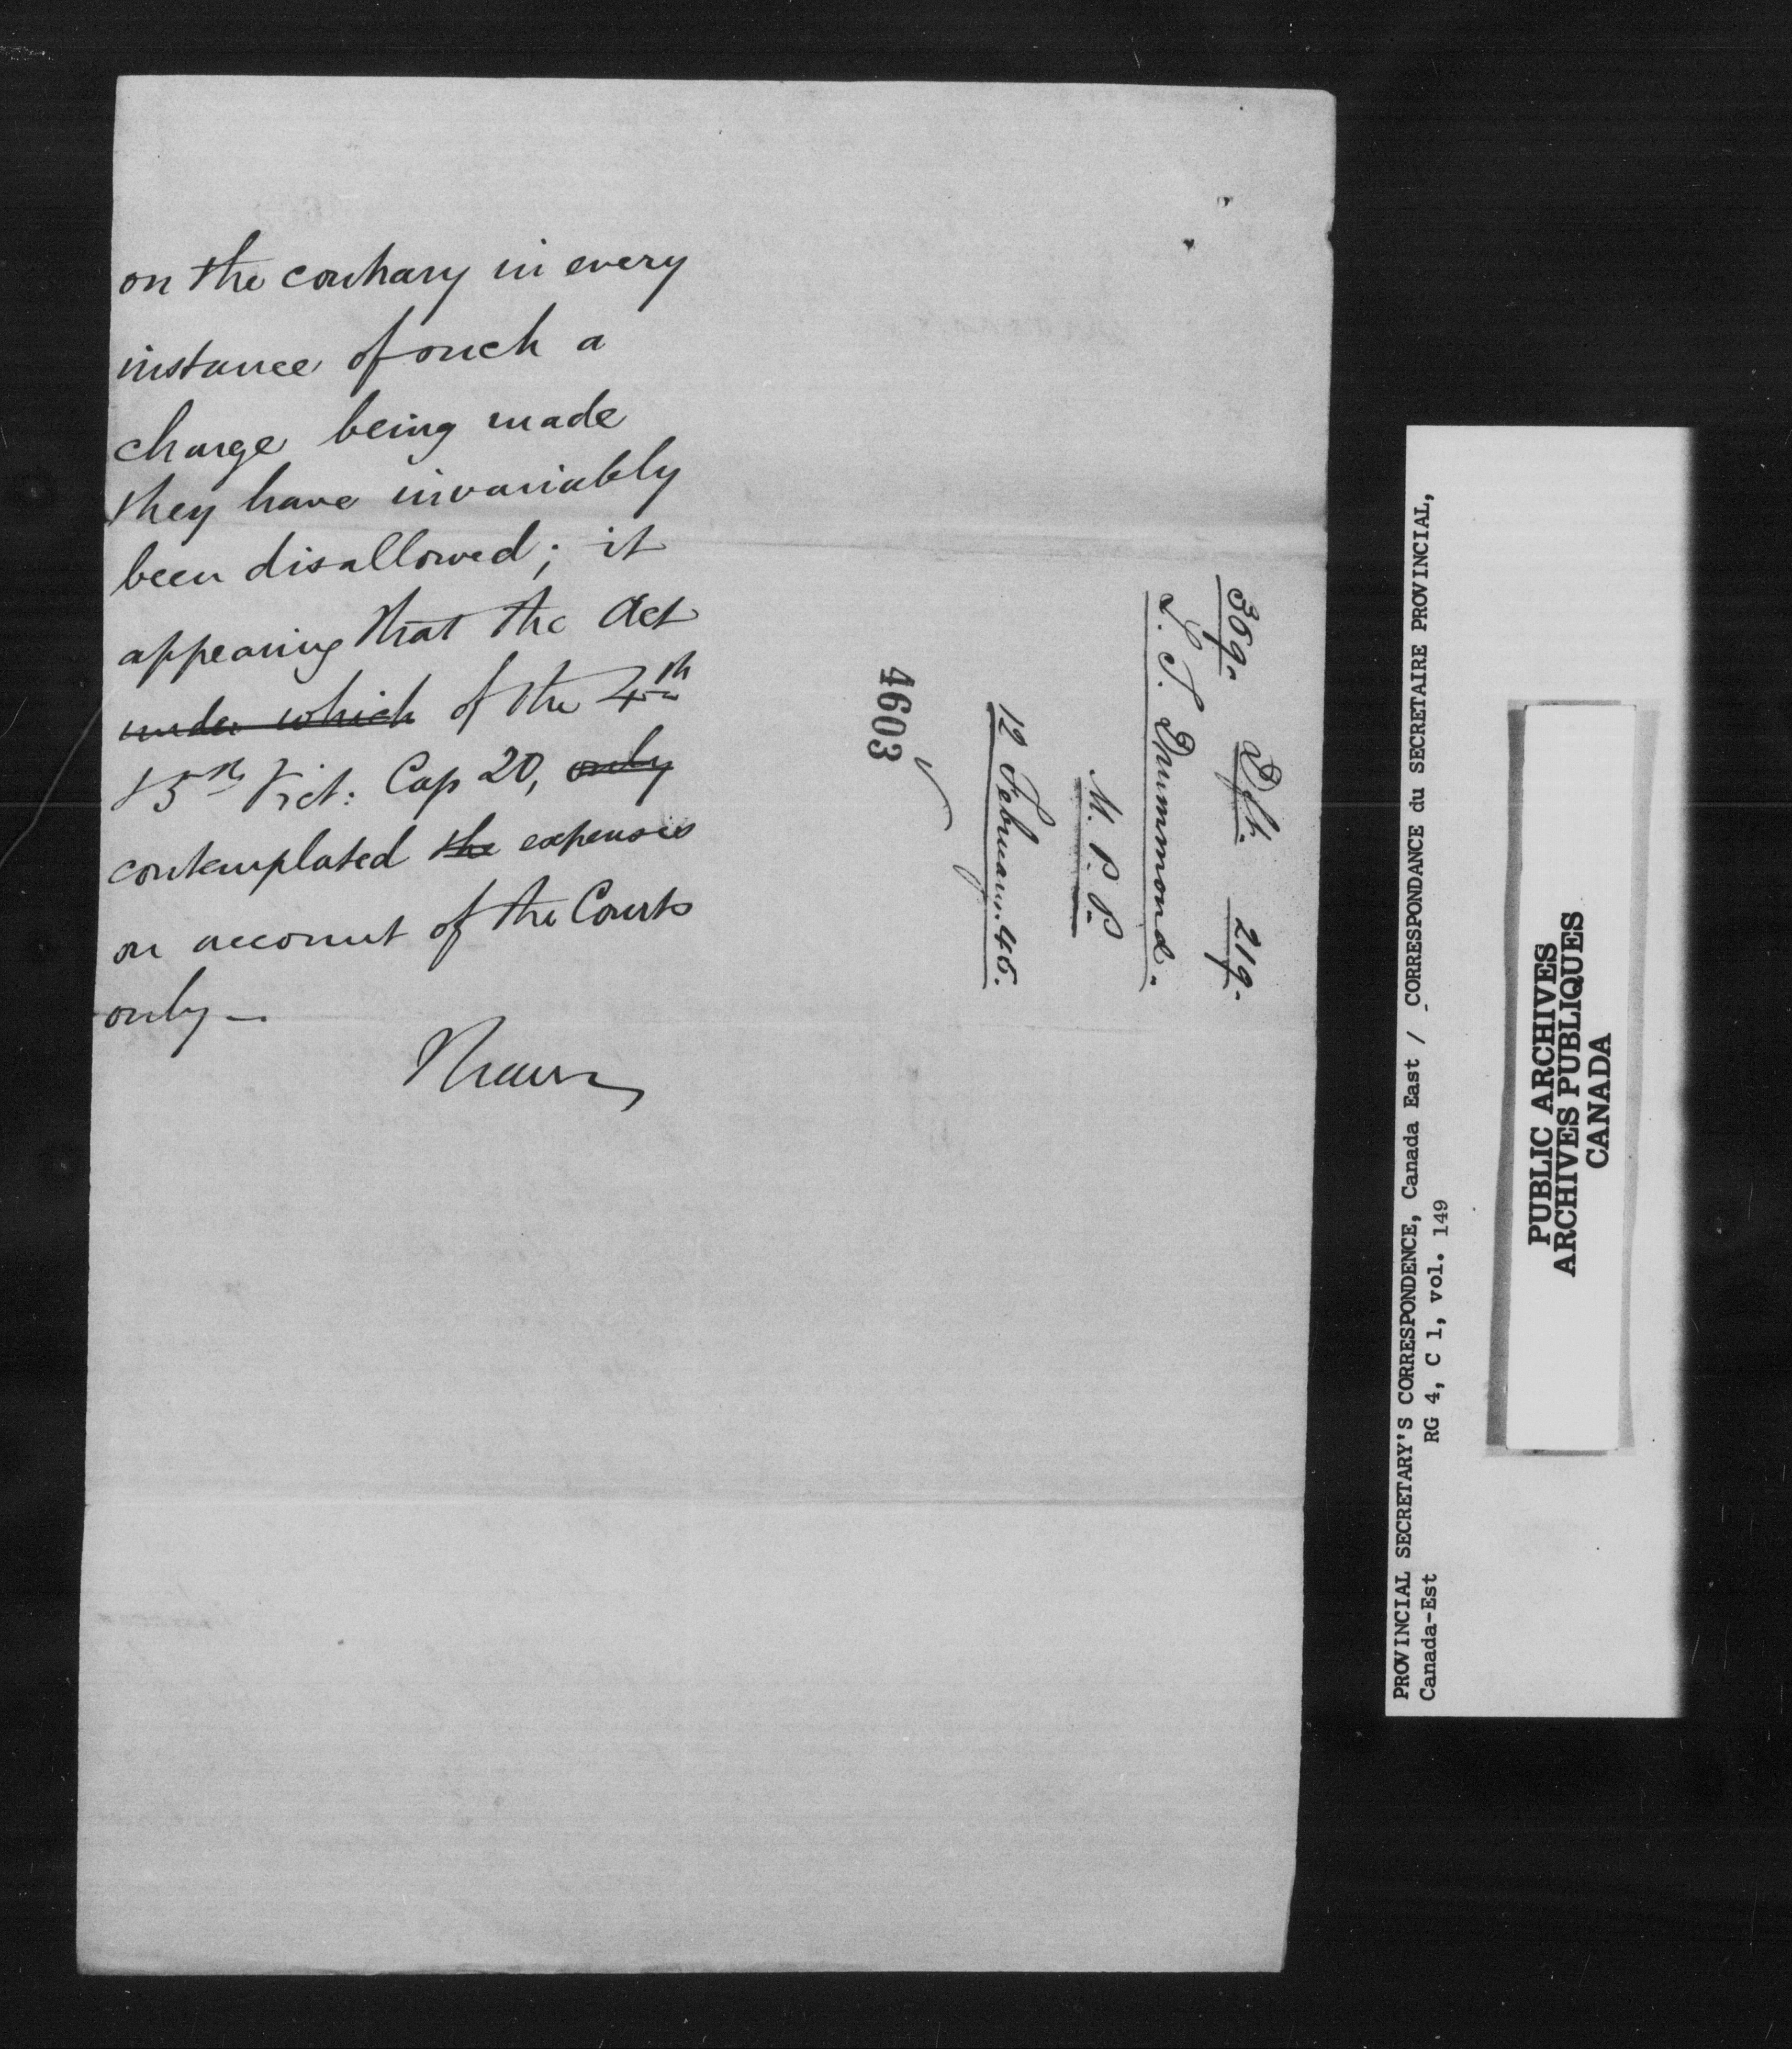 on the contrary in every
instance of such a
charge being made
they have invariably
been disallowed; it
appearing that the Act
under which of the 4th
& 5th Vict: Cap 20, only
contemplated the expenses
on account of the Courts
only —
369. Dft. 219.
L. T. Drummond.
M. P. P.
12 February. 46.
4603
PROVINCIAL SECRETARY'S CORRESPONDENCE, Canada East / CORRESPONDANCE du SECRETAIRE PROVINCIAL,
Canada-Est RG 4, C 1, vol. 149
PUBLIC ARCHIVES
ARCHIVES PUBLIQUES
CANADA